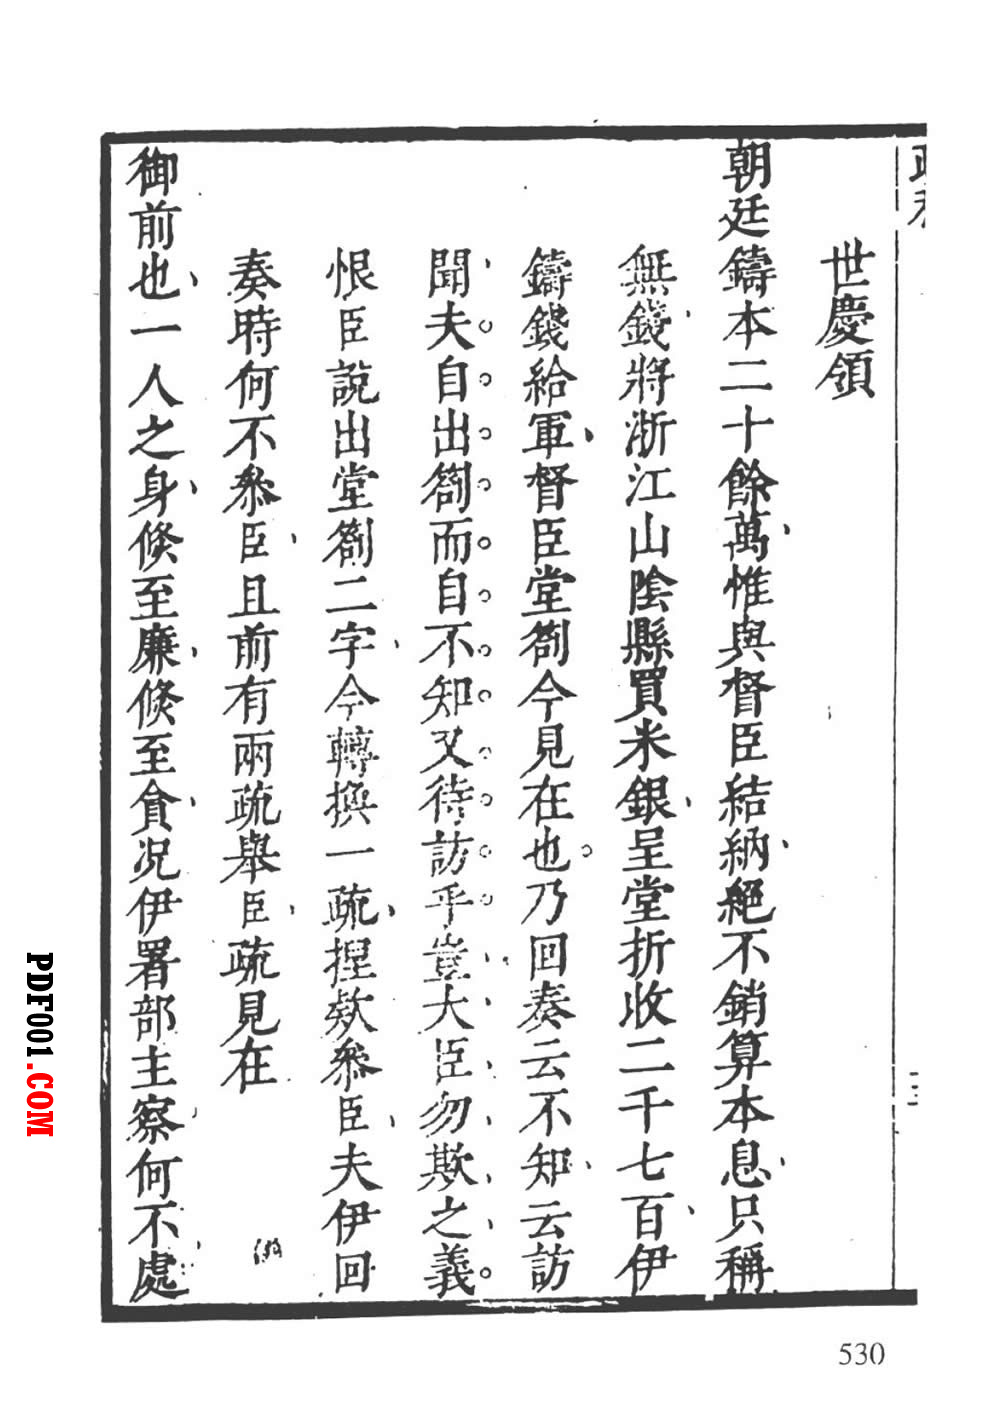 世慶領
朝廷鑄本二十餘萬惟與督臣結納絕不銷算本息只稱
無錢將浙江山陰縣買米銀呈堂折收二千七百伊
鑄錢給軍督臣堂劄今見在也乃回奏云不知云訪
聞夫自出劄而自不知又待訪乎豈大臣勿欺之義
恨臣說出堂劄二字今轉換一疏捏欵叅臣夫伊回
奏時何不叅臣且前有兩疏舉臣疏見在
御前也一人之身倐至廉倐至貪况伊署部主察何不處
530
PDF001.COM